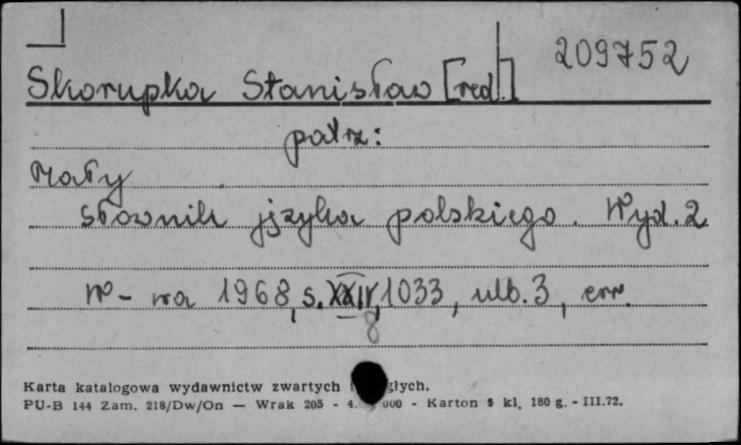 209752
Skorupka Stanisław [red.]
patrz:
Mały
słownik języka polskiego. Wyd. 2
W-wa 1968, s. XXIV, 1033, ulb. 3, err.
8
Karta katalogowa wydawnictw zwartych
PU-B 144 Zam. 218/Dw/On — Wrak 205 - Karton 5 kl, 180 g. - III.72.